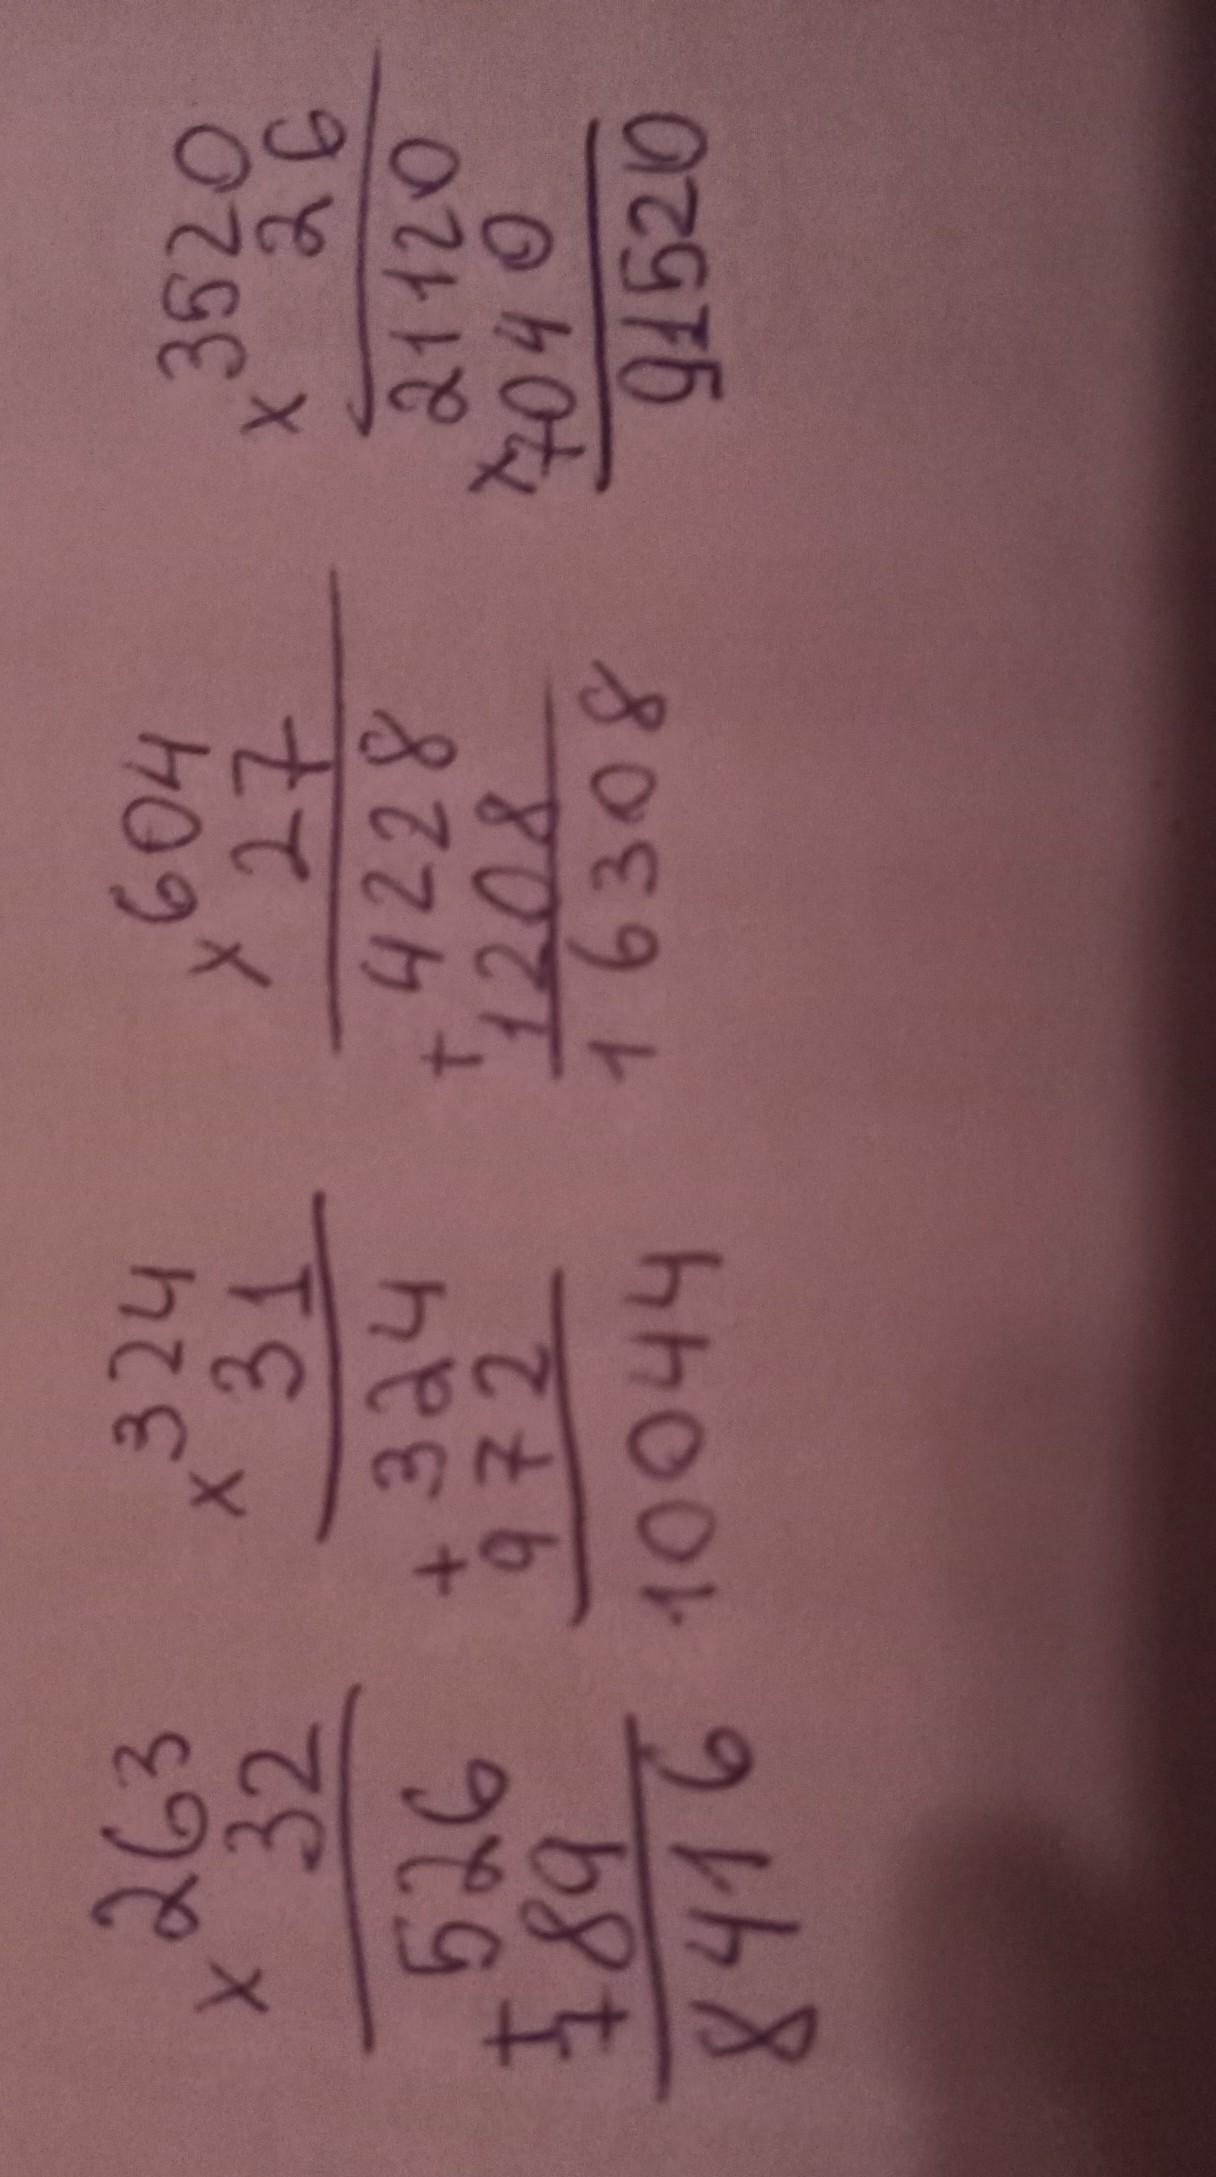 263
× 32
526
+ 789
8416
324
× 31
324
+ 972
10044
604
× 27
4228
+ 1208
16308
3520
× 26
21120
× 7040
91520